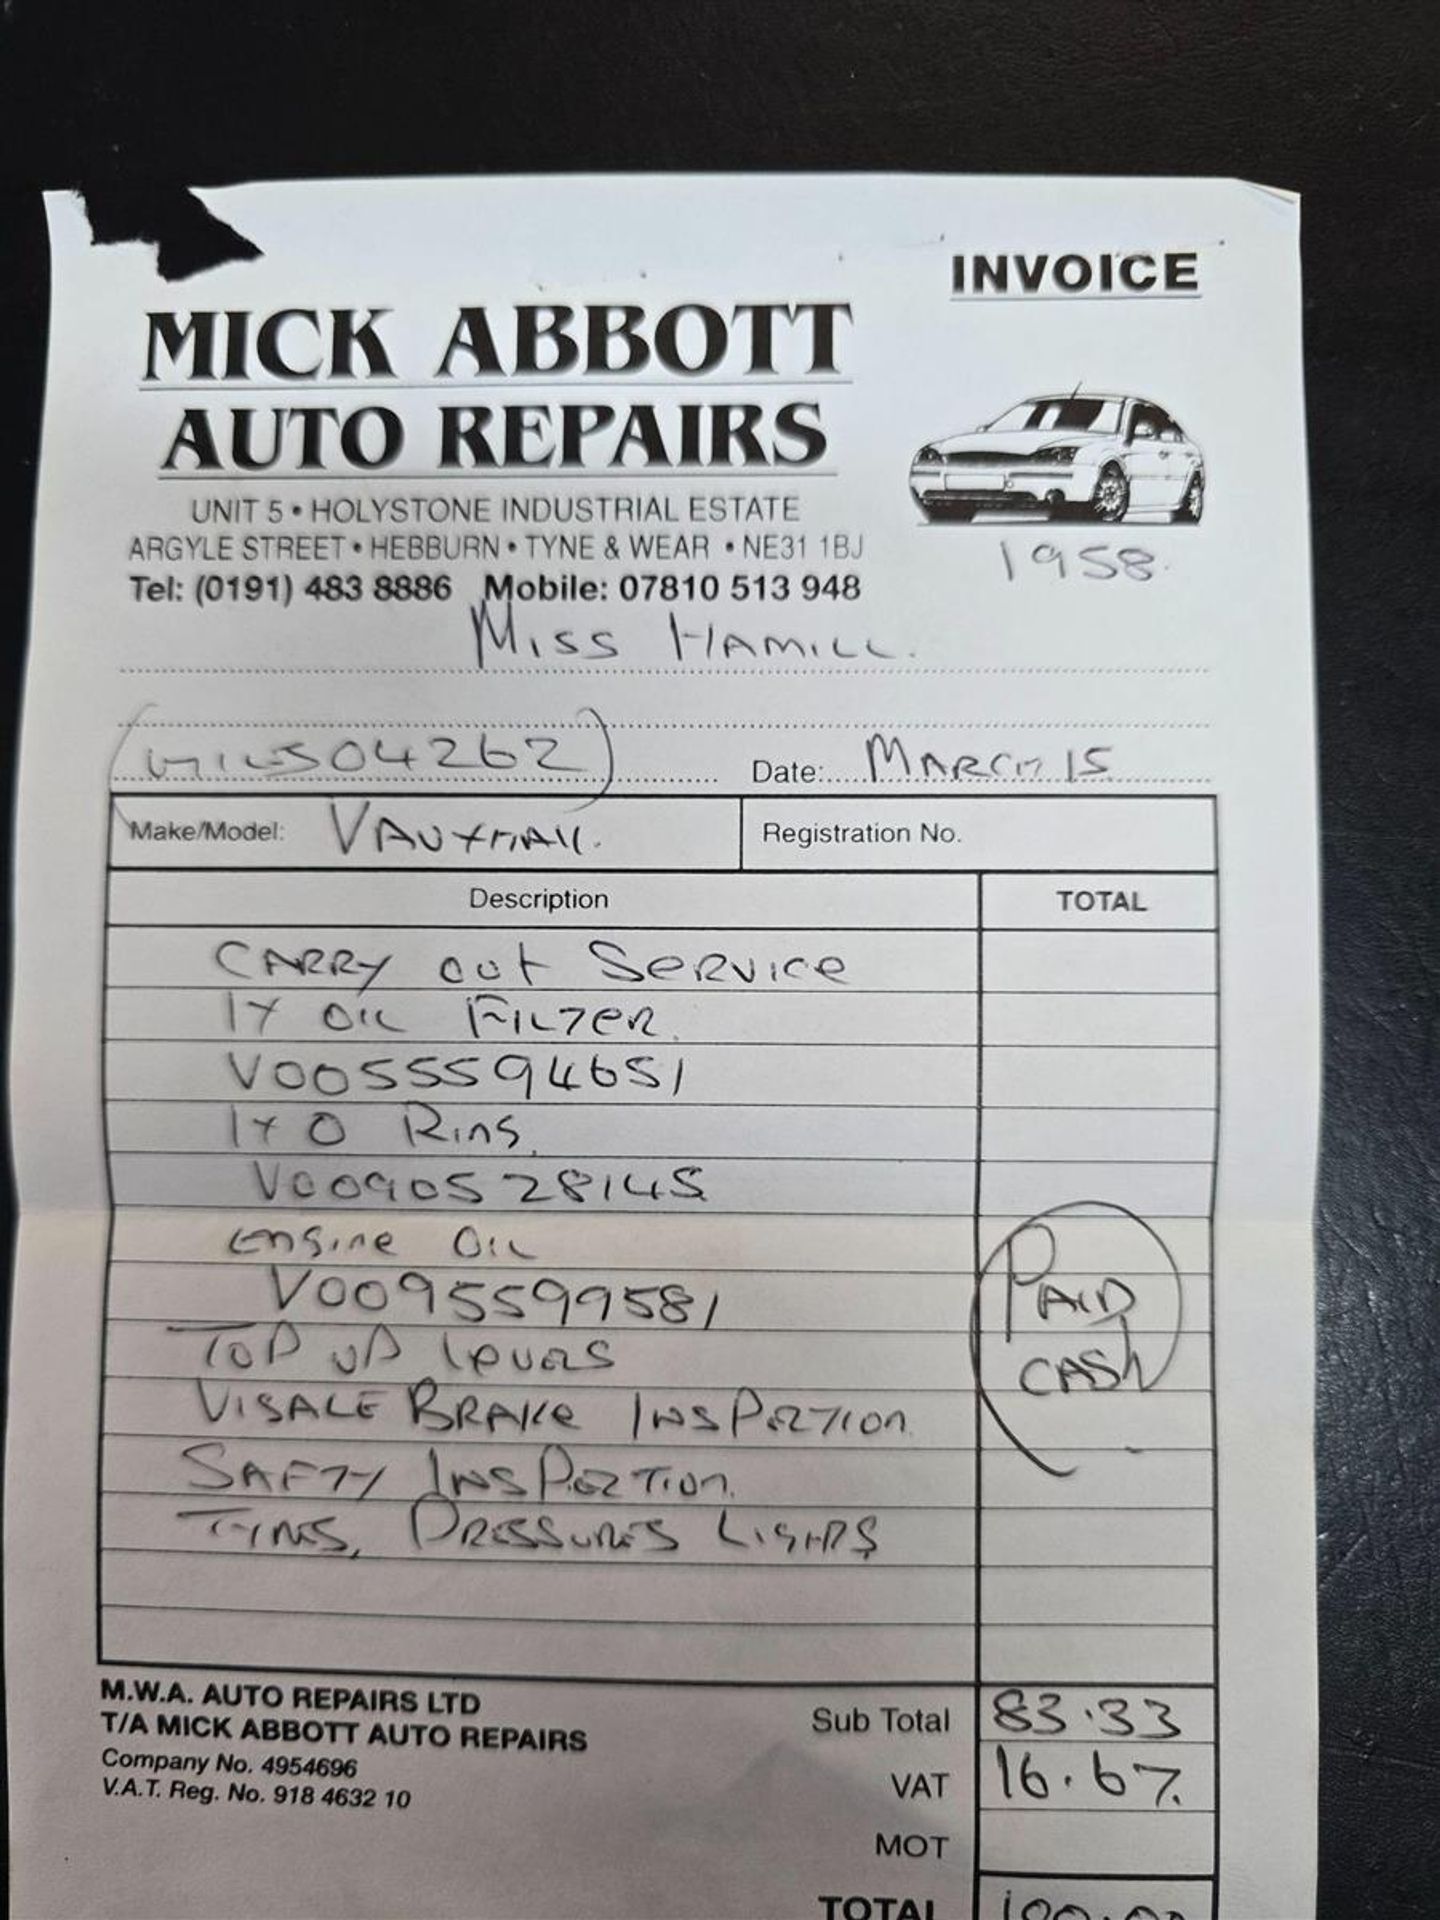 INVOICE
MICK ABBOTT
AUTO REPAIRS
UNIT 5 • HOLYSTONE INDUSTRIAL ESTATE
ARGYLE STREET • HEBBURN • TYNE & WEAR • NE31 1BJ
Tel: (0191) 483 8886 Mobile: 07810 513 948
1958.
MISS HAMILL.
04262) Date: MARCH 15
Make/Model: VAUXHALL. Registration No.
Description TOTAL
CARRY out Service
1X OIL FILTER.
V0055594651
1X O Ring
V0090528145
engine OIL
V0095599581
TOP UP levels
VISALE BRAKE INSPECTION.
SAFTY INSPECTION.
TYRES, PRESSURES LIGHTS
PAID
CASH
M.W.A. AUTO REPAIRS LTD
T/A MICK ABBOTT AUTO REPAIRS
Company No. 4954696
V.A.T. Reg. No. 918 4632 10
Sub Total 83.33
VAT 16.67.
MOT
TOTAL 100.00